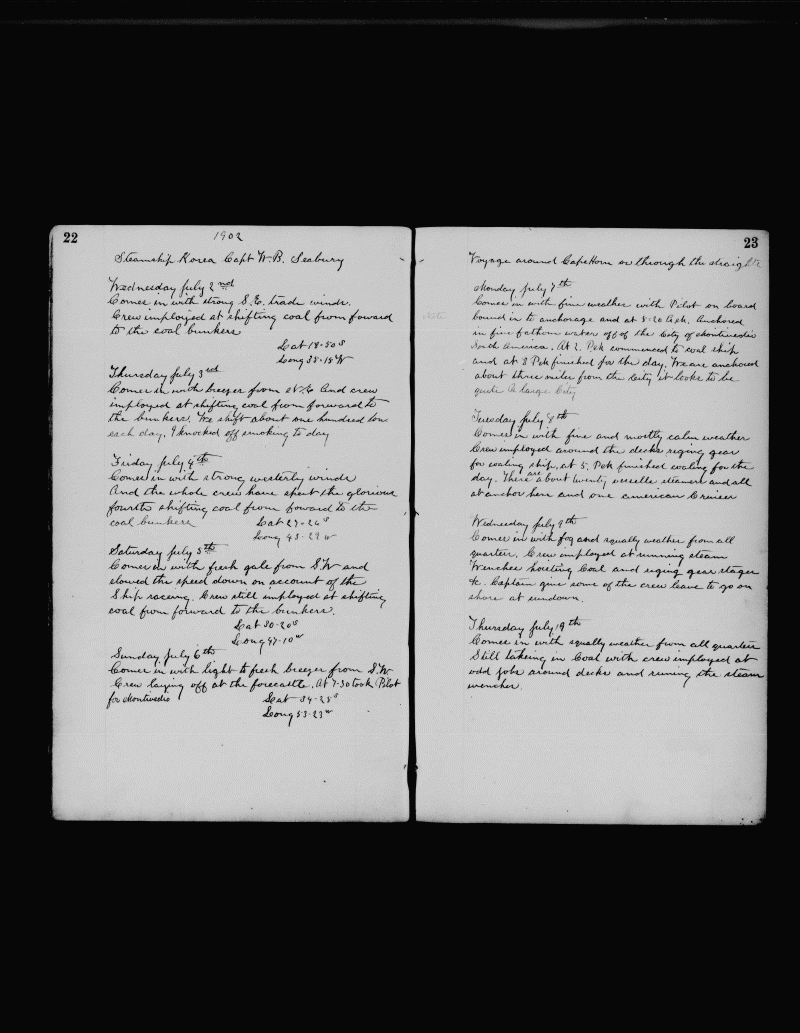 22
1902
Steamship Korea Capt W.B. Seabury
Wednesday July 2nd
Comes in with strong S.E. trade winds.
Crew imployed at shifting coal from foward
to the coal bunkers
Lat 18-50 S
Long 38-15 W
Thursday July 3rd
Comes in with breezes from N.E. And crew
imployed at shifting coal from forward to
the bunkers. We shift about one hundred tons
each day. I knocked off smoking to day
Friday July 4th
Comes in with strong westerly winds
And the whole crew have spent the glorious
fourth shifting coal from foward to the
coal bunkers
Lat 27-26 S
Long 43-29 W
Saturday July 5th
Comes in with fresh gale from S.W and
slowed the speed down on account of the
Ship raceing. Crew still imployed at shifting
coal from forward to the bunkers.
Lat 30-20 S
Long 47-10 W
Sunday July 6th
Comes in with light to fresh breezes from S.W
Crew laying off at the forecastle. At 7-30 took Pilot
for Montivedio
Lat 34-25 S
Long 53-23 W
23
Voyage around Cape Horn or through the straights
Monday July 7th
Comes in with fine weather with Pilot on board
bound in to anchorage and at 8-20 A.M. Anchored
in five fathom water off of the City of Montivedio
South America. At 2. P.M commenced to coal ship
and at 8 P.M finished for the day. We are anchored
about three miles from the City it looks to be
quite a large City
Tuesday July 8th
Comes in with fine and mostly calm weather
Crew imployed around the decks riging gear
for coaling ship. at 5. P.M finished coaling for the
day. There are about twenty vessells steamers and all
at anchor here and one american Cruiser
Wednesday July 9th
Comes in with fog and squally weather from all
quarters. Crew imployed at running steam
Wenches hoisting Coal and riging gear stages
&c. Captain give some of the crew leave to go on
shore at sundown.
Thursday July 10th
Comes in with squally weather from all quarters
Still takeing in Coal with crew imployed at
odd jobs around decks and runing the steam
wenches.